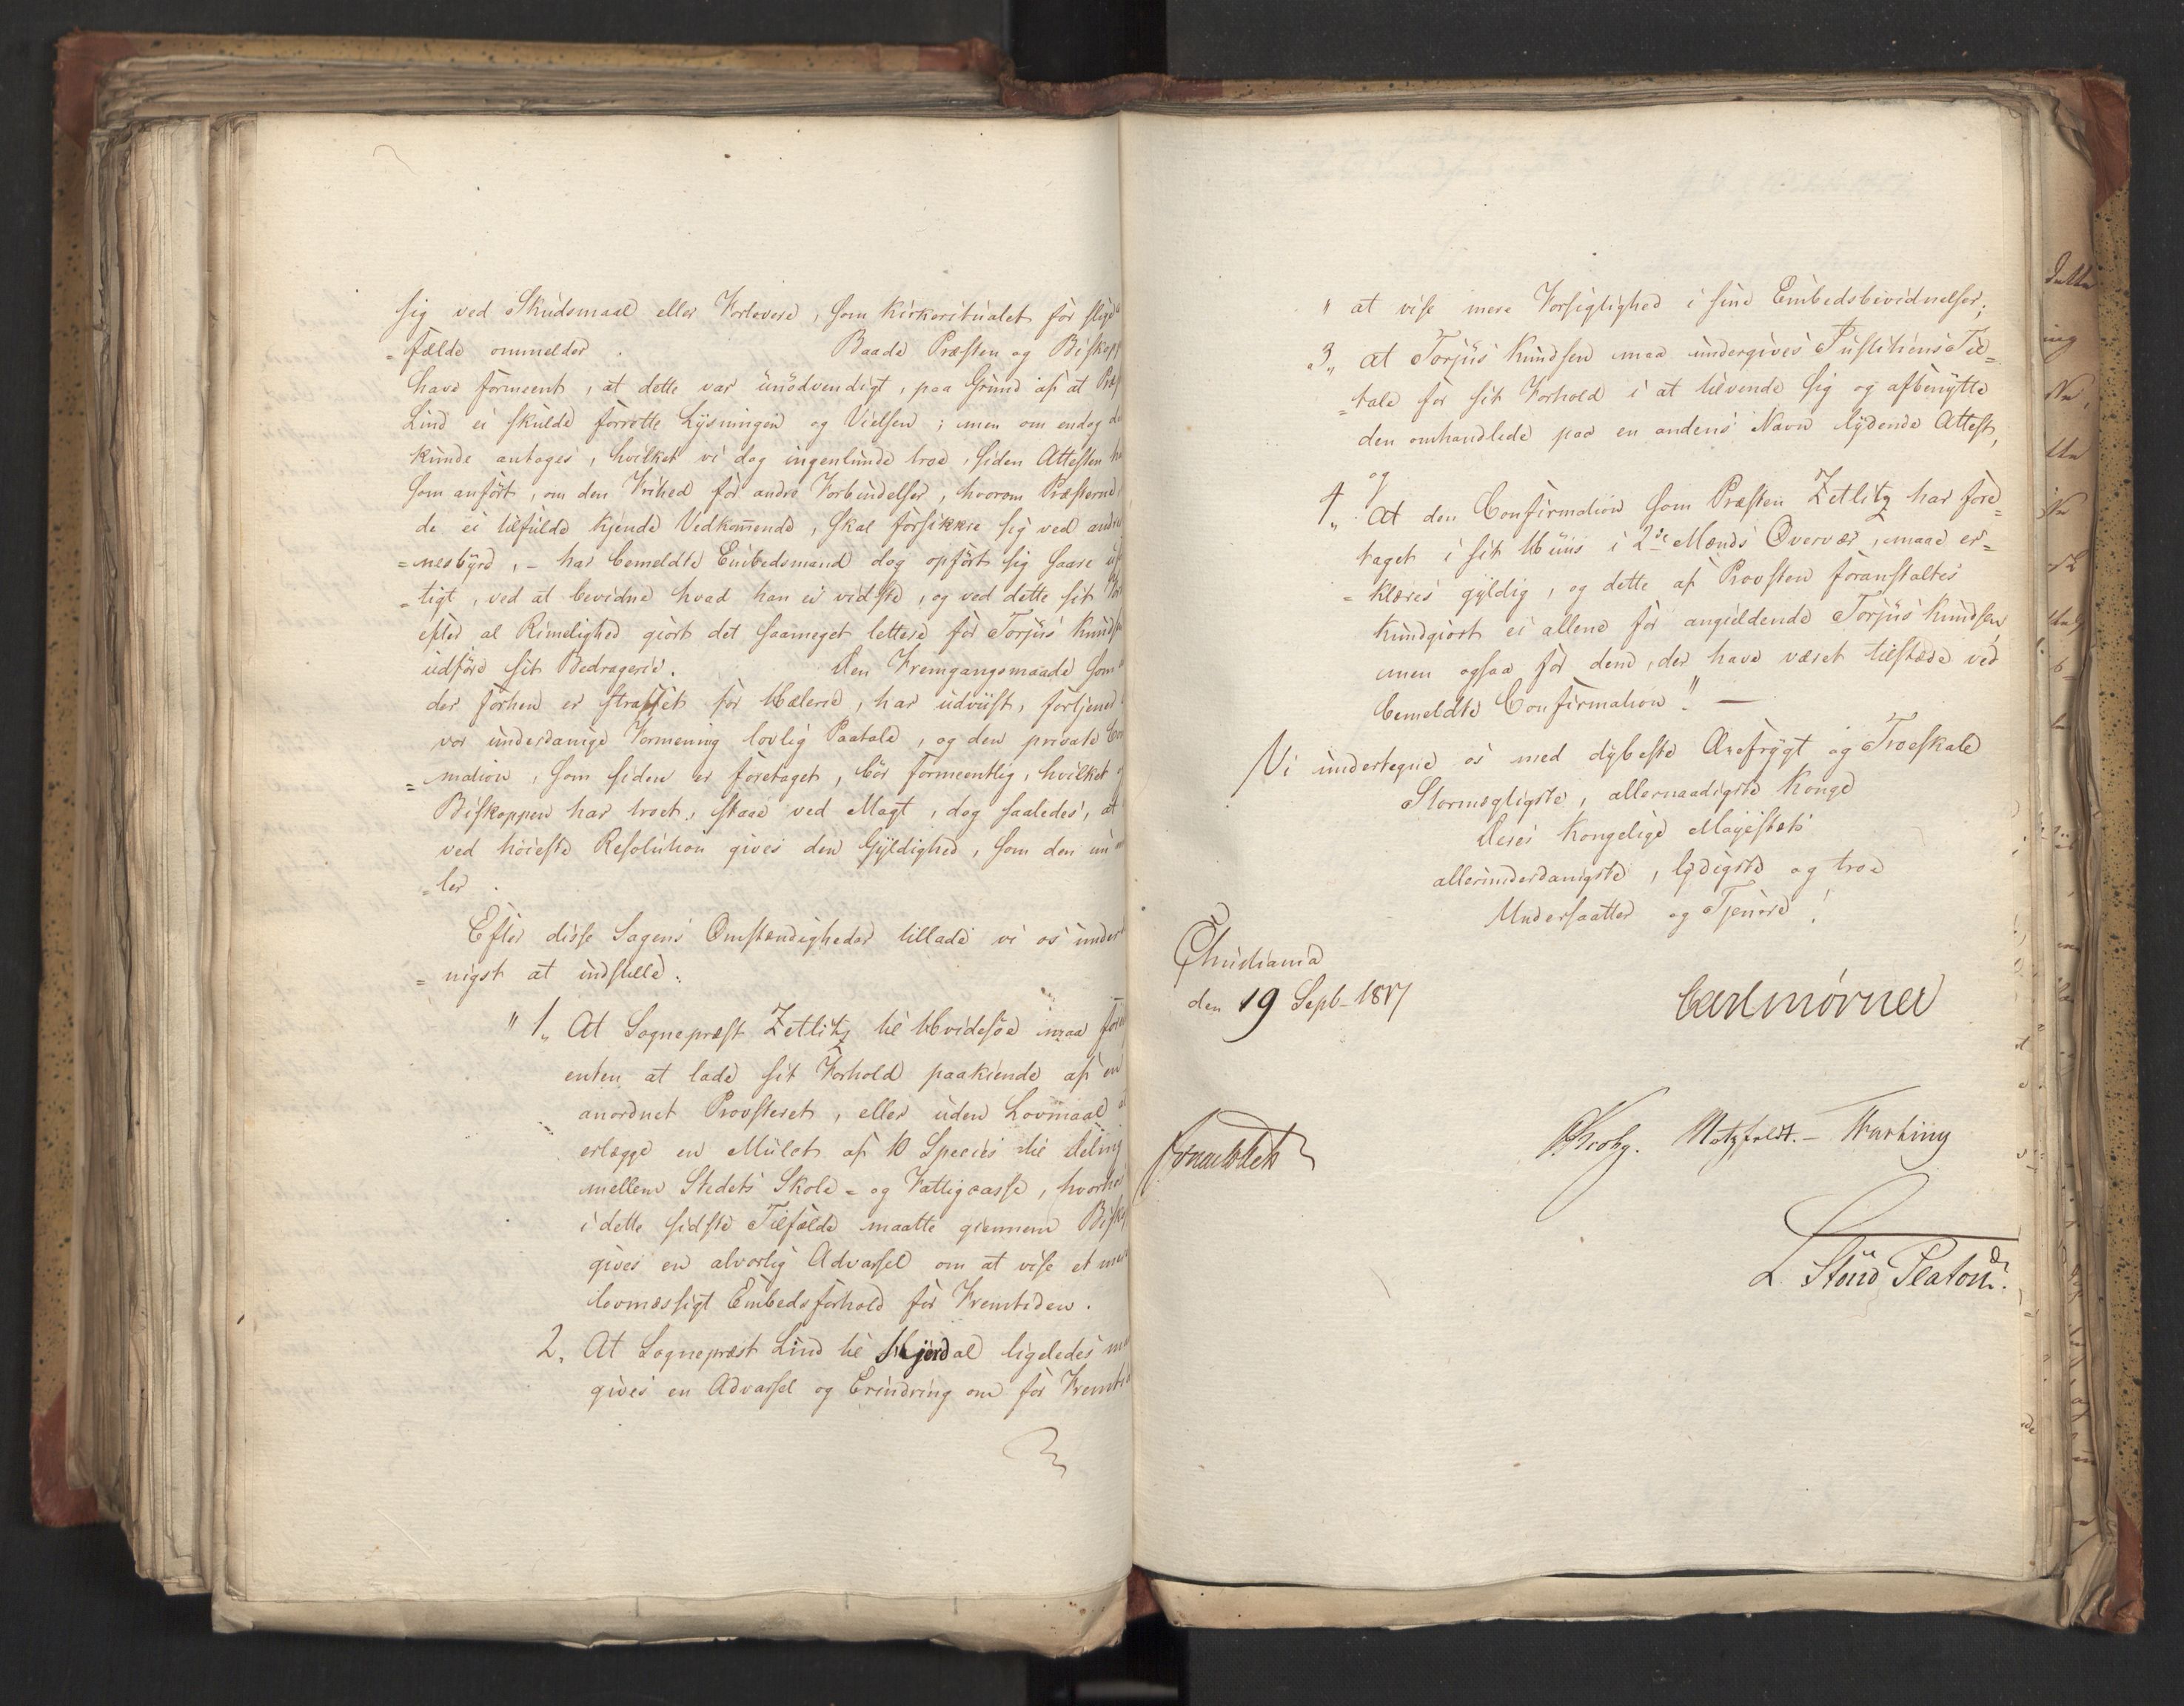 sig ved Skudsmaal eller Forlovere, som Kirkeritualet for slige
=fælde ommelder. Baade Præsten og Biskopp
have formeent, at dette var unødvendigt, paa Grund af at Præst
Lind ei skulde forrette Lysningen og Vielsen; men om endog de
kunde antages, hvilket vi dog ingenlunde troe, siden Attesten ha
som anført, om den Frihed for andre Forbindelser, hvorom Præsterne,
de ei tilfulde kjende Vedkommende, skal forsikkre sig ved andre
=nesbyrd, - har bemeldte Embedsmand dog opført sig saare uf
=tigt, ved at bevidne hvad han ei vidste, og ved dette sit For
efter al Rimelighed giort det saameget lettere for Torjus Knuds
udføre sit Bedragerie. Den Fremgangsmaade som
der forhen er straffet for Hælerie, har udviist, fortjener
vor underdanige Formening lovlig Paatale, og den private Con
=mation, som siden er foretaget, bør formeentlig, hvilket og
Biskoppen har troet, staae ved Magt, dog saaledes, at
ved høieste Resolution gives den Gyldighed, som den nu
=ler.
Efter disse Sagens Omstændigheder tillade vi os under
=nigst at indstille:
" 1, At Sognepræst Zetlitz til Hvidesøe maa
enten at lade sit Forhold paakiende af en
anordnet Provsteret, eller uden Lovmaal at
erlægge en Mulct af 10 Species til Deling
mellem Stedets Skole= og Fattigcasse, hvorhos
i dette sidste Tilfælde maatte giennem Bisk
gives en alvorlig Advarsel om at vise et mere
lovmæssigt Embedsforhold for Fremtiden.
2, At Sognepræst Lind til Hjerdal ligeledes maa
gives en Advarsel og Erindring om for Fremtid
" at vise mere Forsigtighed i sine Embedsbevidnelser;
3, at Torjus Knudsen maa undergives Justitiens Til=
=tale for sit Forhold i at tilvende sig og afbenytte
den omhandlede paa en andens Navn lydende Attest,
og
4, At den Confirmation som Præsten Zetlitz har fore=
taget i sit Huus i 2de Mænds Overvær, maae er=
=klæres gyldig, og dette af Provsten foranstaltes
kundgiort ei allene for angieldende Torjus Knudsen
men ogsaa for dem, der have været tilstæde ved
bemeldte Confirmation". —
Vi undertegne os med dybeste Ærefrygt og Troeskab
Stormægtigste, allernaadigste Konge
Deres Kongelige Majestæts
allerunderdanigste, lydigste og troe
Undersaatter og Tjenere!
Christiania
den 19 Septr 1817
Carl Mörner
Krohg. Motzfeldt.
L. Stoud Platou.